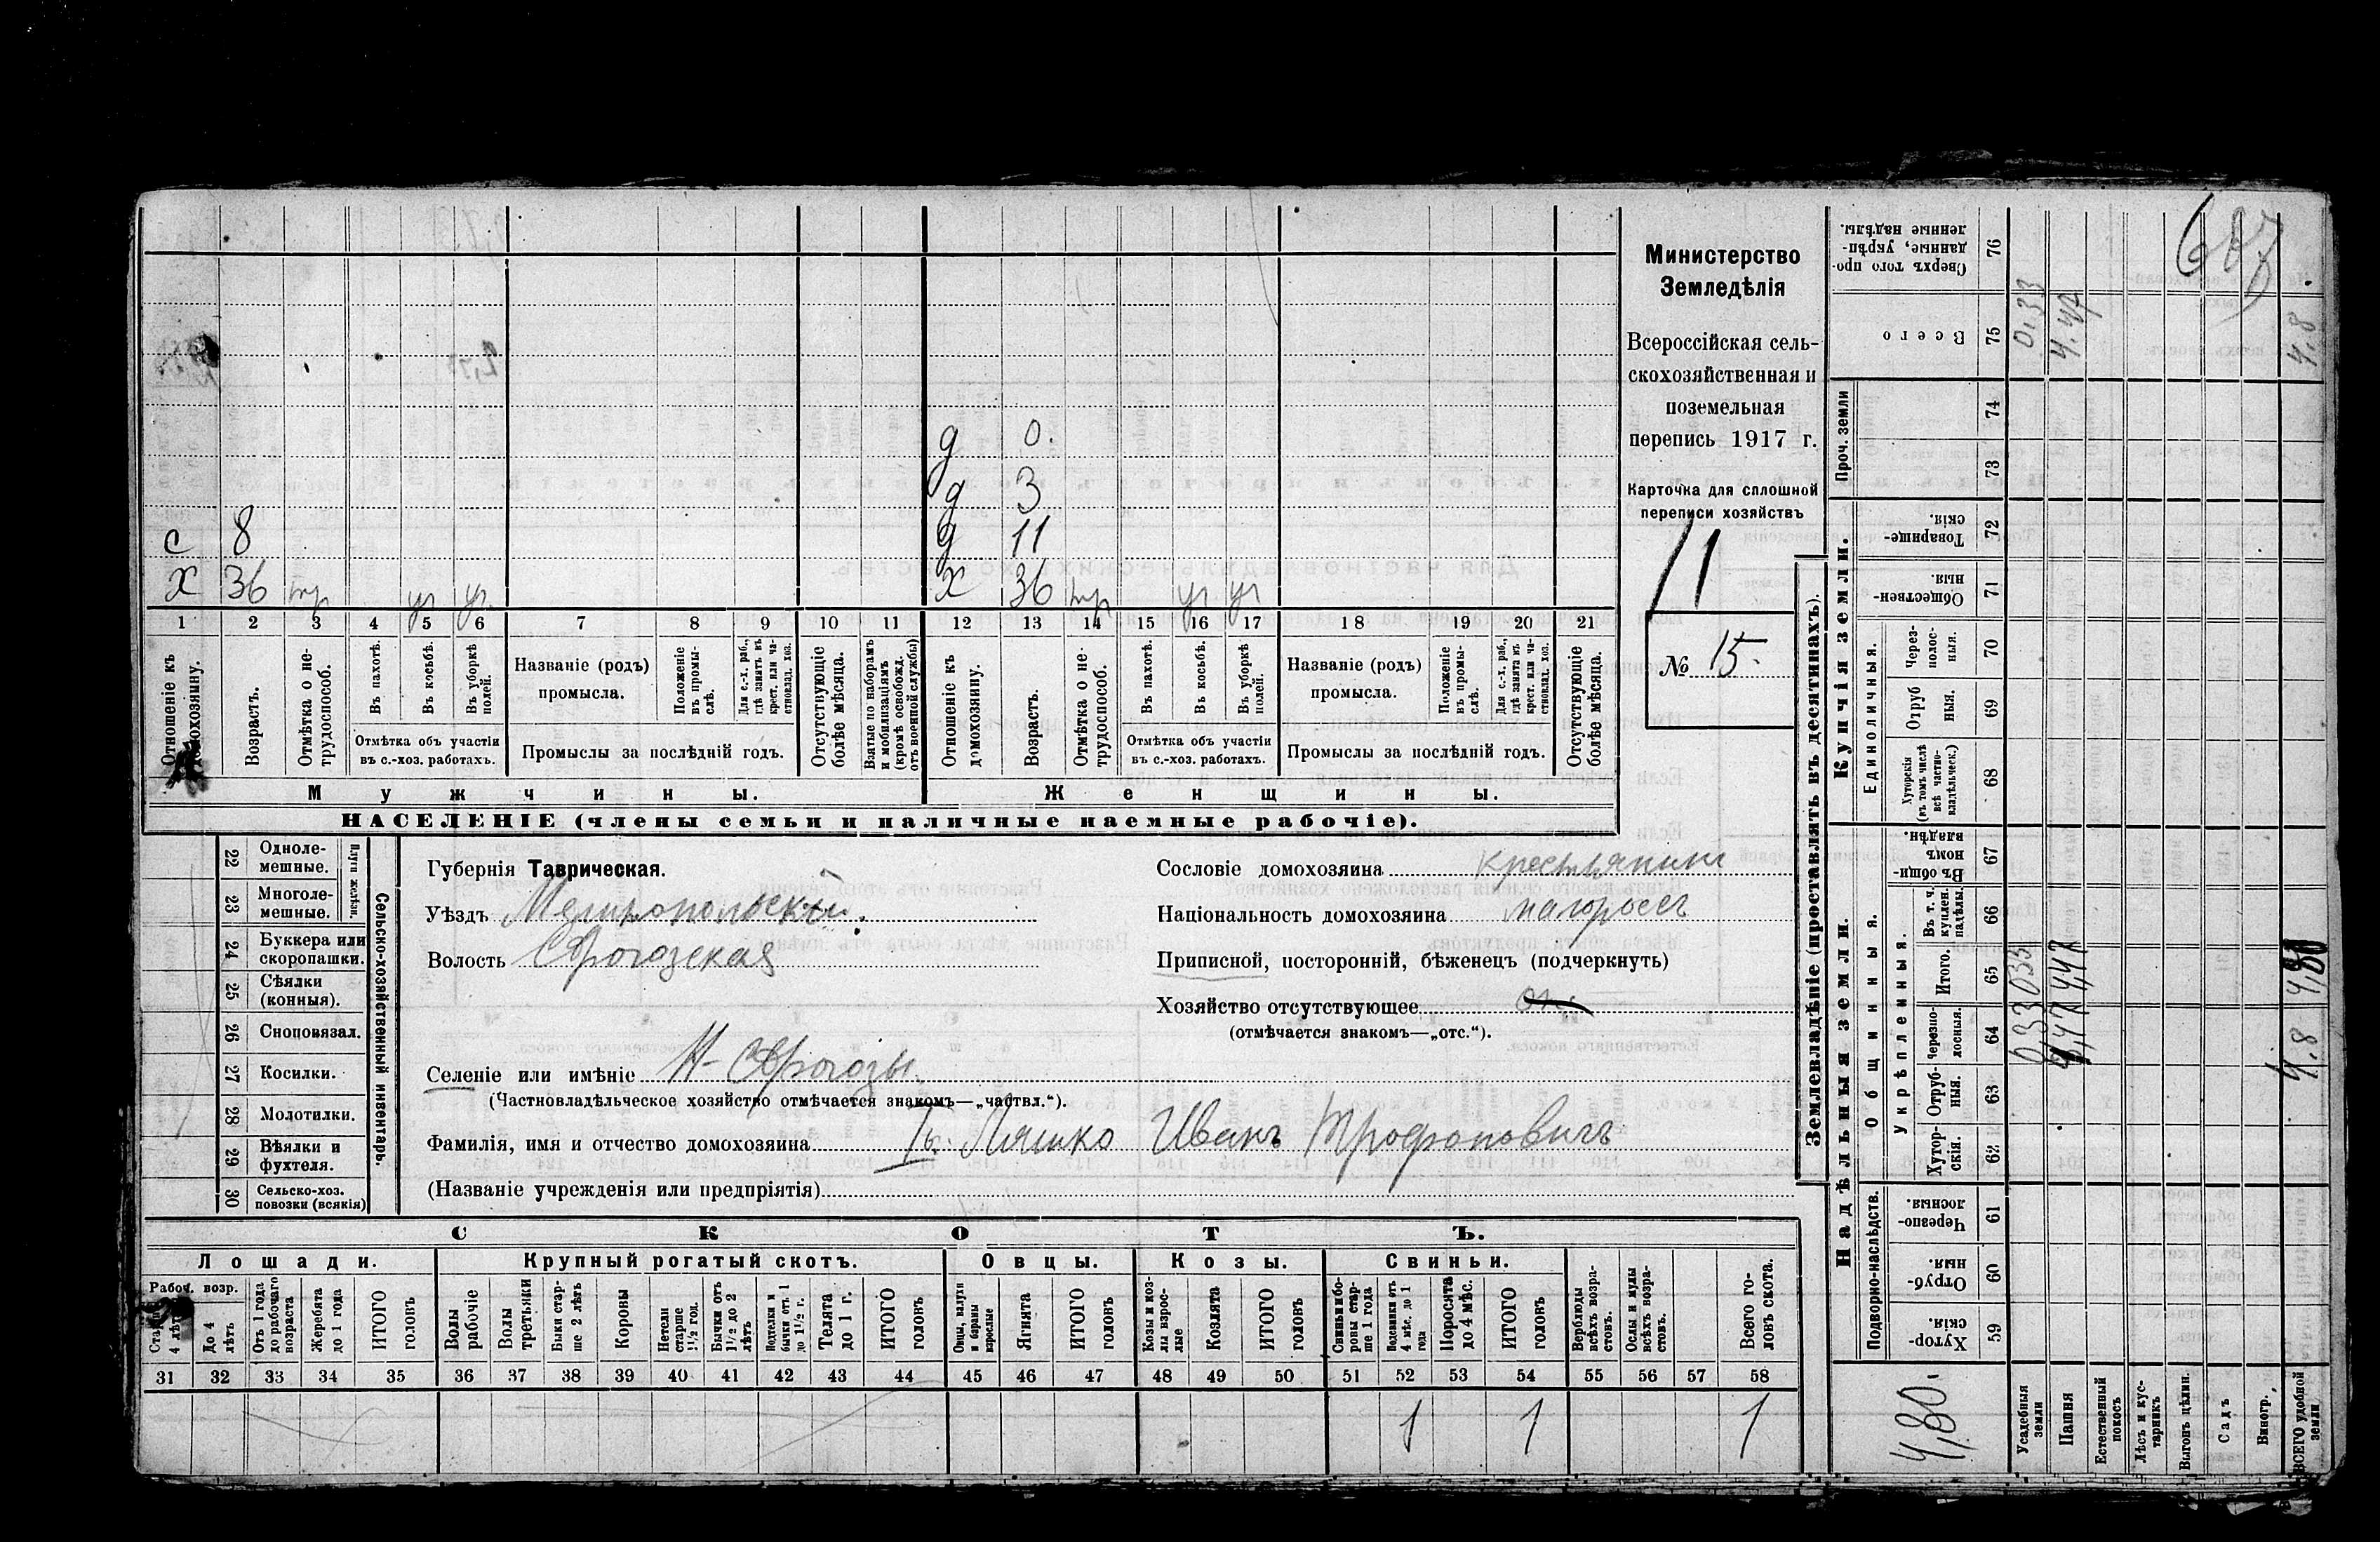 Министерство
Земледѣлія
Всероссійская сель-
скохозяйственная и
поземельная
перепись 1917 г.
Карточка для сплошной
переписи хозяйствъ
11
№ 15.
687
д 0.
д 3
с 8 д 11
х 36 нр уг уг. х 36 нр уг уг
1 2 3 4 5 6 7 8 9 10 11 12 13 14 15 16 17 18 19 20 21
Отношеніе къ домохозяину.
Возрастъ.
Отмѣтка о не-трудоспособ.
Въ пахотѣ.
Въ косьбѣ.
Въ уборкѣ полей.
Отмѣтка объ участіи
въ с.-хоз. работахъ.
Названіе (родъ)
промысла.
Положеніе въ промы-слѣ.
Для с.-х. раб., гдѣ занятъ въ крест. или ча-стновлад. хоз.
Промыслы за послѣдній годъ.
Отсутствующіе болѣе мѣсяца.
Взятые по наборамъ и мобилизаціямъ (кромѣ освобожд. отъ военной службы)
Отношеніе къ домохозяину.
Возрастъ.
Отмѣтка о не-трудоспособ.
Въ пахотѣ.
Въ косьбѣ.
Въ уборкѣ полей.
Отмѣтка объ участіи
въ с.-хоз. работахъ.
Названіе (родъ)
промысла.
Положеніе въ промы-слѣ.
Для с.-х. раб., гдѣ занята въ крест. или ча-стновлад. хоз.
Промыслы за послѣдній годъ.
Отсутствующіе болѣе мѣсяца.
Мужчины.
Женщины.
НАСЕЛЕНІЕ (члены семьи и наличные наемные рабочіе).
Сельско-хозяйственный инвентарь.
Плуги желѣзн.
22 Одноле-мешные.
23 Многоле-мешные.
24 Буккера или скоропашки.
25 Сѣялки (конныя).
26 Сноповязал.
27 Косилки.
28 Молотилки.
29 Вѣялки и фухтеля.
30 Сельско-хоз. повозки (всякія)
Губернія Таврическая.
Уѣздъ Мелитопольскій.
Волость Сѣрогозская
Селеніе или имѣніе Н-Сѣрогозы
(Частновладѣльческое хозяйство отмѣчается знакомъ—„частвл.“).
Фамилія, имя и отчество домохозяина Ляшко Иванъ Трофимовичъ
(Названіе учрежденія или предпріятія)
Сословіе домохозяина крестьянинъ
Національность домохозяина малороссъ
Приписной, посторонній, бѣженецъ (подчеркнуть)
Хозяйство отсутствующее
(отмѣчается знакомъ—„отс.“).
СКОТЪ.
Лошади. Крупный рогатый скотъ. Овцы. Козы. Свиньи.
Рабоч. возр.
Старше 4 лѣтъ
До 4 лѣтъ
Отъ 1 года до рабочаго возраста
Жеребята до 1 года
ИТОГО головъ
Волы рабочіе
Волы третьяки
Быки стар-ше 2 лѣтъ
Коровы
Нетели старше 1½ год.
Бычки отъ 1½ до 2 лѣтъ
Подтелки и бычки отъ 1 до 1½ г.
Телята до 1 г.
ИТОГО головъ
Овцы, валухи и бараны взрослые
Ягнята
ИТОГО головъ
Козы и коз-лы взрос-лые
Козлята
ИТОГО головъ
Свиньи и бо-ровы стар-ше 1 года
Подсвинки отъ 4 мѣс. до 1 года
Поросята до 4 мѣс.
ИТОГО головъ
Верблюды всѣхъ возра-стовъ.
Ослы и мулы всѣхъ возра-стовъ.
Всего го-ловъ скота.
31 32 33 34 35 36 37 38 39 40 41 42 43 44 45 46 47 48 49 50 51 52 53 54 55 56 57 58
1 1 1
Землевладѣніе (проставлять въ десятинахъ).
Надѣльныя земли.
Купчія земли.
Проч. земли
Подворно-наслѣдств.
Общинныя.
Укрѣпленныя.
Единоличныя.
Хутор-скія. 59
Отруб-ныя. 60
Черезпо-лосныя. 61
Хутор-скія. 62
Отруб-ныя. 63
Черезпо-лосныя. 64
Итого. 65
Въ т. ч. куплен. надѣлы. 66
Въ общи-номъ владѣн. 67
Хуторскія (въ томъ числѣ всѣ частно-владѣльческ.) 68
Отруб ныя. 69
Через-полос-ныя. 70
Обществен-ныя. 71
Товарище-скія. 72
73
74
Всего 75
Сверхъ того про-данные, укрѣп-ленные надѣлы. 76
4,80.
Усадебныя земли 0,33 033 0,33
Пашня 4,47 447 4.47
Естественный покосъ
Лѣсъ и кус-тарникъ
Выгонъ цѣлин.
Садъ
Виногр.
ВСЕГО удобной земли 4.8 4,80 4,8